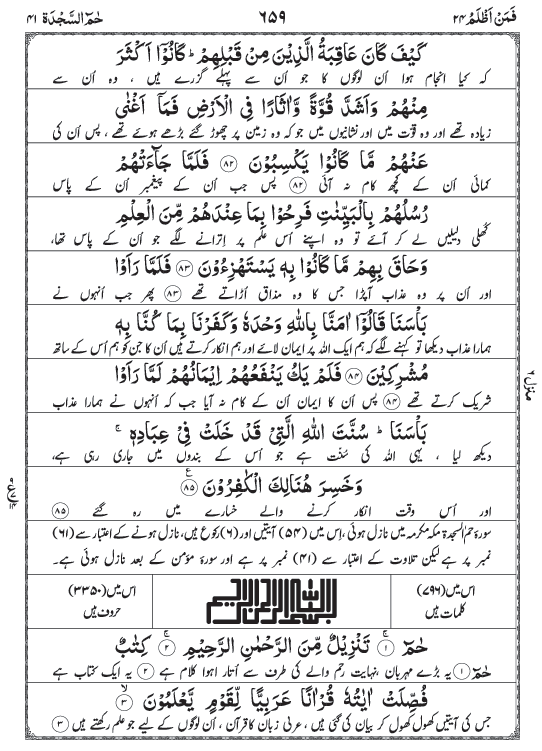 فَمَنْ اَظْلَمُ ۲۴
۶۵۹
حٰمٓ السَّجْدَة ۴۱
كَيْفَ كَانَ عَاقِبَةُ الَّذِيْنَ مِنْ قَبْلِهِمْ ؕ كَانُوْٓا اَكْثَرَ
کہ کیا انجام ہوا اُن لوگوں کا جو اُن سے پہلے گزرے ہیں ، وہ اُن سے
مِنْهُمْ وَاَشَدَّ قُوَّةً وَّاٰثَارًا فِى الْاَرْضِ فَمَآ اَغْنٰى
زیادہ تھے اور وہ قوّت میں اور نشانیوں میں جو کہ وہ زمین پر چھوڑ گئے بڑھے ہوئے تھے ، پس اُن کی
عَنْهُمْ مَّا كَانُوْا يَكْسِبُوْنَ ﴿۸۲﴾ فَلَمَّا جَآءَتْهُمْ
کمائی اُن کے کچھ کام نہ آئی ﴿۸۲﴾ پس جب اُن کے پیغمبر اُن کے پاس
رُسُلُهُمْ بِالْبَيِّنٰتِ فَرِحُوْا بِمَا عِنْدَهُمْ مِّنَ الْعِلْمِ
کھلی دلیلیں لے کر آئے تو وہ اپنے اُس علم پر اِترانے لگے جو اُن کے پاس تھا،
وَحَاقَ بِهِمْ مَّا كَانُوْا بِهٖ يَسْتَهْزِءُوْنَ ﴿۸۳﴾ فَلَمَّا رَاَوْا
اور اُن پر وہ عذاب آپڑا جس کا وہ مذاق اُڑاتے تھے ﴿۸۳﴾ پھر جب اُنہوں نے
بَاْسَنَا قَالُوْٓا اٰمَنَّا بِاللّٰهِ وَحْدَهٗ وَكَفَرْنَا بِمَا كُنَّا بِهٖ
ہمارا عذاب دیکھا تو کہنے لگے کہ ہم ایک اللہ پر ایمان لائے اور ہم انکار کرتے ہیں اُن کا جن کو ہم اُس کے ساتھ
مُشْرِكِيْنَ ﴿۸۴﴾ فَلَمْ يَكُ يَنْفَعُهُمْ اِيْمَانُهُمْ لَمَّا رَاَوْا
شریک کرتے تھے ﴿۸۴﴾ پس اُن کا ایمان اُن کے کام نہ آیا جب کہ اُنہوں نے ہمارا عذاب
بَاْسَنَا ؕ سُنَّتَ اللّٰهِ الَّتِىْ قَدْ خَلَتْ فِىْ عِبَادِهٖ ۚ
دیکھ لیا ، یہی اللہ کی سُنت ہے جو اُس کے بندوں میں جاری رہی ہے،
وَخَسِرَ هُنَالِكَ الْكٰفِرُوْنَ ﴿۸۵﴾
اور اُس وقت انکار کرنے والے خسارے میں رہ گئے ﴿۸۵﴾
سورۃ حم السجدۃ مکہ مکرمہ میں نازل ہوئی، اِس میں (۵۴) آیتیں اور (۶) رکوع ہیں، نازل ہونے کے اعتبار سے (۶۱)
نمبر پر ہے لیکن تلاوت کے اعتبار سے (۴۱) نمبر پر ہے اور سورۂ مؤمن کے بعد نازل ہوئی ہے۔
اس میں (۷۹۶) کلمات ہیں
بسم الله الرحمن الرحيم
اس میں (۳۳۵۰) حروف ہیں
حٰمٓ ﴿۱﴾ تَنْزِيْلٌ مِّنَ الرَّحْمٰنِ الرَّحِيْمِ ﴿۲﴾ كِتٰبٌ
حٰمٓ ﴿۱﴾ یہ بڑے مہربان ، نہایت رحم والے کی طرف سے اُتارا ہوا کلام ہے ﴿۲﴾ یہ ایک کتاب ہے
فُصِّلَتْ اٰيٰتُهٗ قُرْاٰنًا عَرَبِيًّا لِّقَوْمٍ يَّعْلَمُوْنَ ﴿۳﴾
جس کی آیتیں کھول کھول کر بیان کی گئی ہیں ، عربی زبان کا قرآن ، اُن لوگوں کے لیے جو علم رکھتے ہیں ﴿۳﴾
منزل ۶